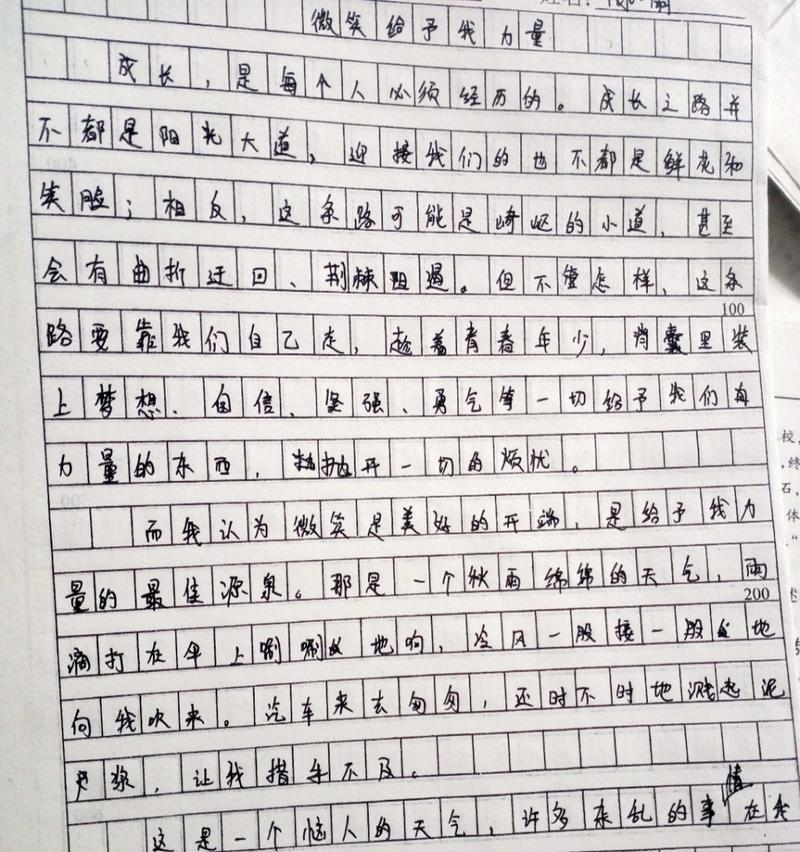 微笑给予我力量
成长，是每个人必须经历的。成长之路并
不都是阳光大道，迎接我们的也不都是鲜花和
笑脸；相反，这条路可能是崎岖的小道，甚至
会有曲折迂回、荆棘阻遏。但不管怎样，这条
100
路要靠我们自己走，趁着青春年少，背囊里装
上梦想、自信、坚强、勇气等一切给予我们有
力量的东西，抛开一切的烦忧。
而我认为微笑是美好的开端，是给予我力
量的最佳源泉。那是一个秋雨绵绵的天气，雨
200
滴打在伞上唰唰地响，冷风一股接一股地
向我吹来。汽车来去匆匆，还时不时地溅起泥
浆，让我措手不及。
这是一个恼人的天气，许多杂乱的事情在我
校，
终
石，
体